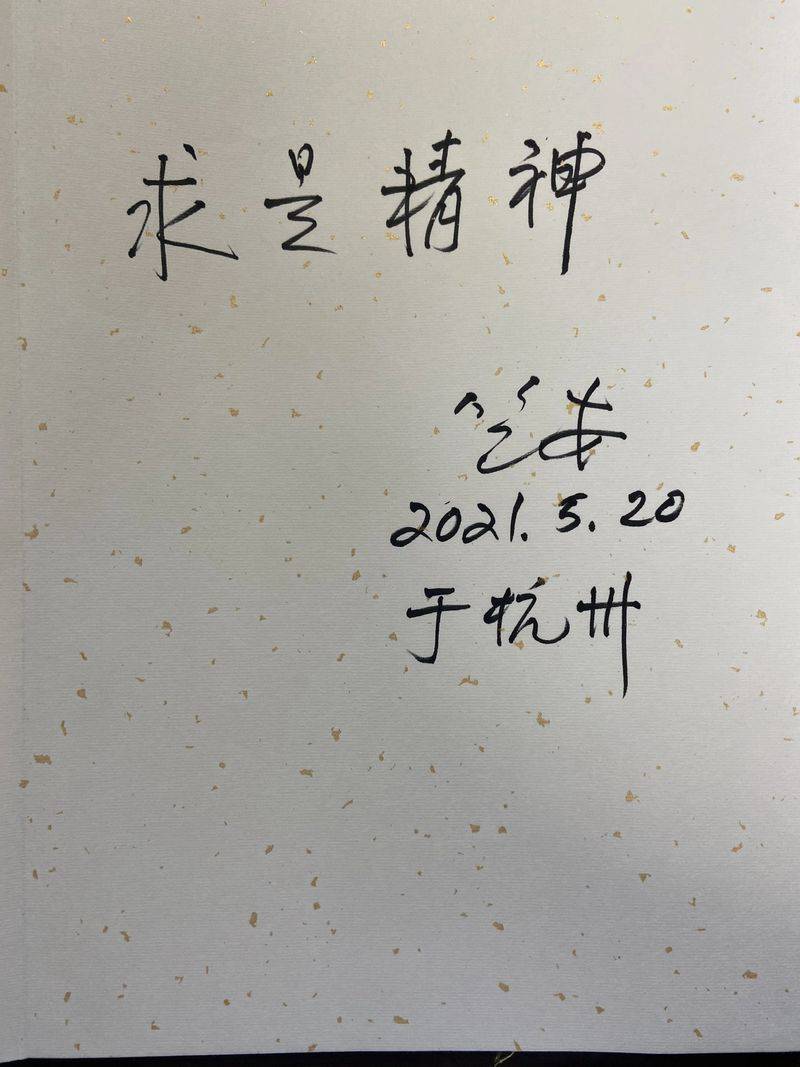 求是精神
2021.5.20
于杭州